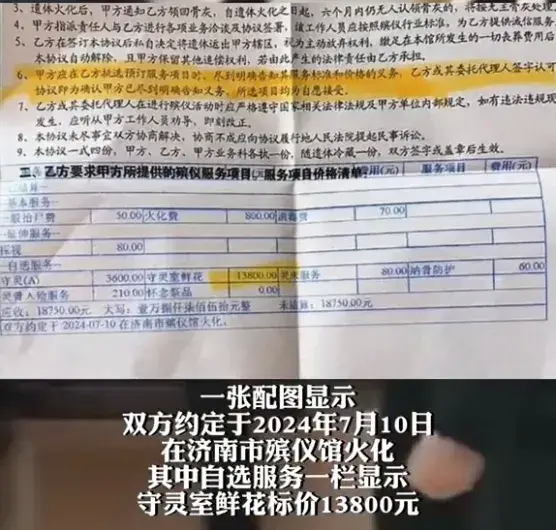 3、遗体火化后，甲方通知乙方领回骨灰，自遗体火化之日起，六个月内仍无人认领骨灰的，将按无主骨灰处理
4、甲方指派责任人与乙方进行各项业务洽谈及协议签署，该工作人员应按照殡仪行业标准，为乙方提供诚信服务
5、乙方在签订本协议后私自决定将遗体运出甲方辖区，视为主动放弃权利，缴足在本馆所发生的一切丧葬费用后
本协议自动解除，且甲方保留其他追偿权利，若由此产生的法律责任由乙方承担。
6、甲方应在乙方挑选预订服务项目时，尽到明确告知其服务标准和价格的义务，乙方或其委托代理人签字认可
协议即为确认甲方已尽到明确告知义务，所选项目均为自愿接受。
7、乙方或其委托代理人在进行殡仪活动时应严格遵守国家相关法律法规及甲方单位内部规定，如有违法违规现
发生，应听从甲方工作人员劝导，即刻改正。
8、本协议未尽事宜双方协商解决，协商不成应向协议履行地人民法院提起民事诉讼。
9、本协议一式四份，甲方、乙方、甲方业务科各执一份，随遗体冷藏一份，双方签字或盖章后生效。
三、乙方要求甲方所提供的殡仪服务项目、服务项目价格清单：
费用(元) 服务项目 费用(元)
基本服务
一般治尸费 50.00 火化费 800.00 消毒费 70.00
延伸服务
80.00
自选服务
守灵(A) 3600.00 守灵室鲜花 13800.00 灵床服务 80.00 纳骨防护 60.00
灵骨入殓服务 210.00 怀念祭品 0.00
应收：18750.00元 大写：壹万捌仟柒佰伍拾元整 未结算：18750.00元
双方约定于2024-07-10在济南市殡仪馆火化。
一张配图显示
双方约定于2024年7月10日
在济南市殡仪馆火化
其中自选服务一栏显示
守灵室鲜花标价13800元